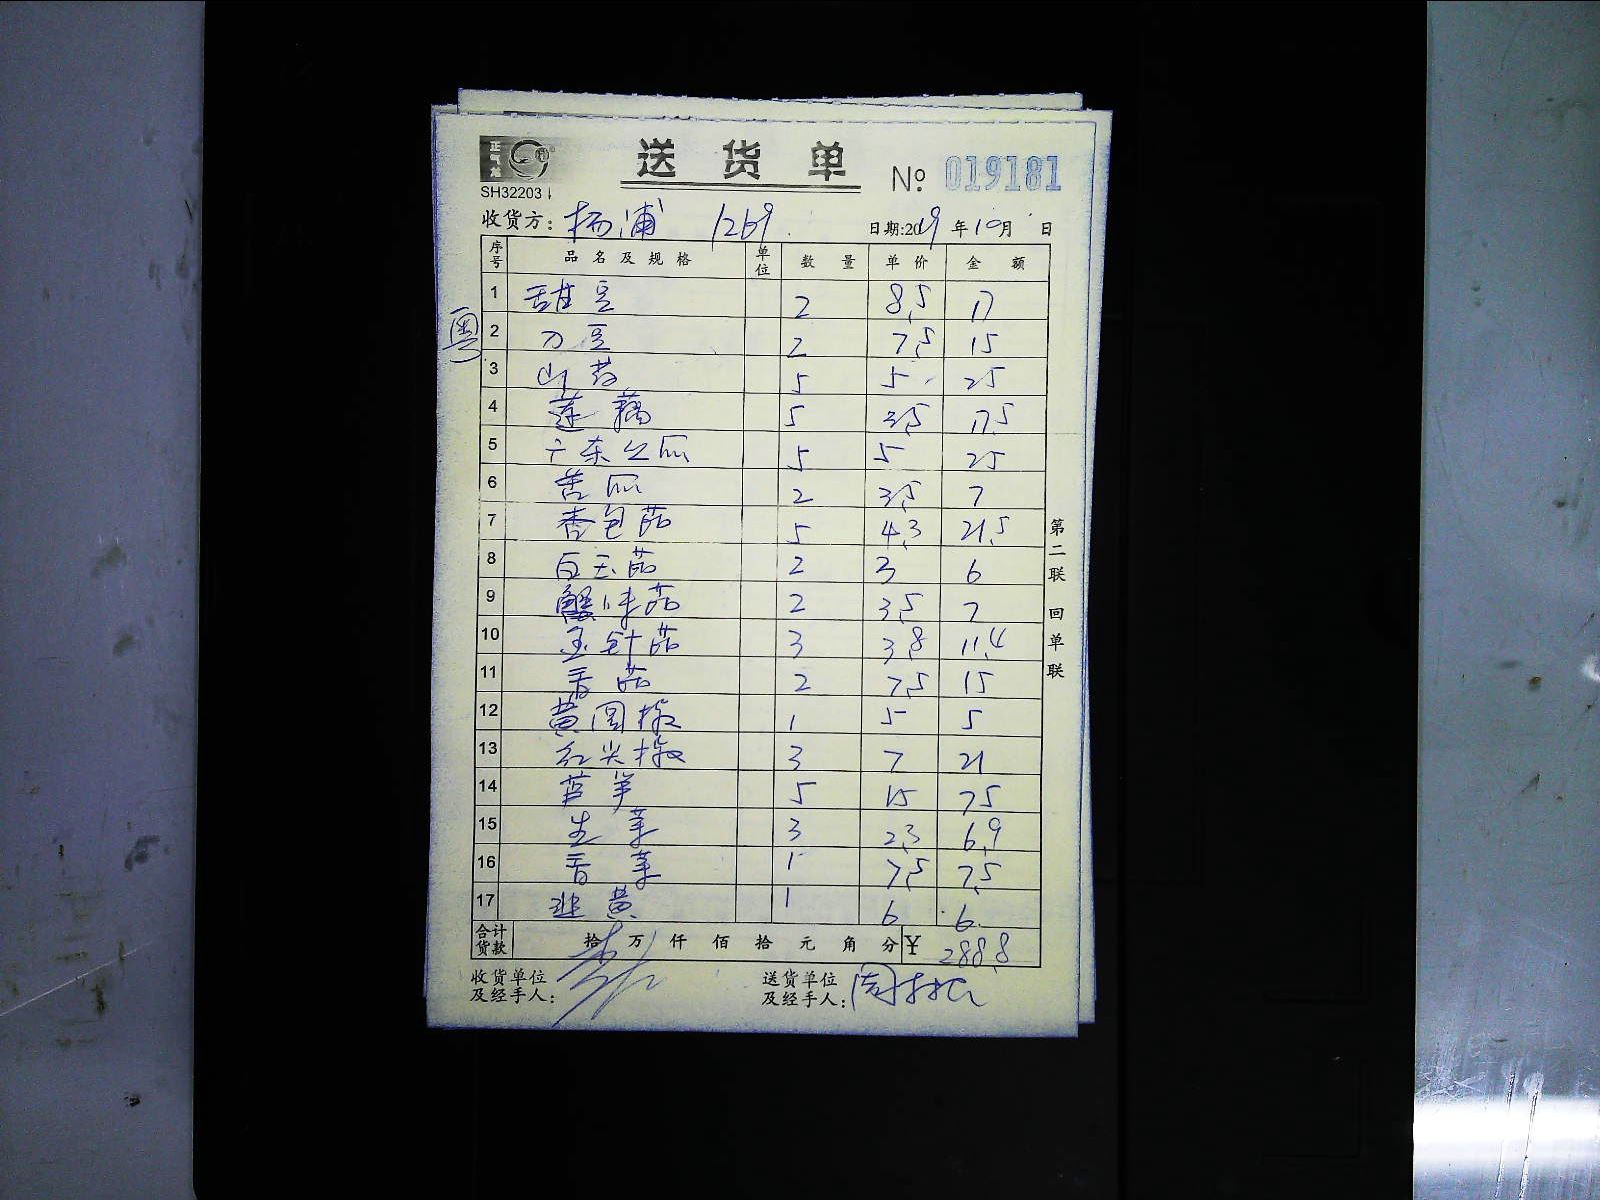 正气龙
送货单 No. 019181
SH32203
收货方: 杨浦 1269 日期:2019年10月 日
序号 品名及规格 单位 数量 单价 金额
粤
1 甜豆 2 8.5 17
2 刀豆 2 7.5 15
3 山药 5 5 25
4 莲藕 5 3.5 17.5
5 广东丝瓜 5 5 25
6 苦瓜 2 3.5 7
7 杏包菇 5 4.3 21.5
8 白玉菇 2 3 6
9 蟹味菇 2 3.5 7
10 金针菇 3 3.8 11.4
11 香菇 2 7.5 15
12 黄圆椒 1 5 5
13 红尖椒 3 7 21
14 芦笋 5 15 75
15 生菜 3 2.3 6.9
16 香菜 1 7.5 7.5
17 韭黄 1 6 6
合计货款 拾 万 仟 佰 拾 元 角 分 ¥ 288.8
收货单位及经手人:
送货单位及经手人: 周
第二联 回单联